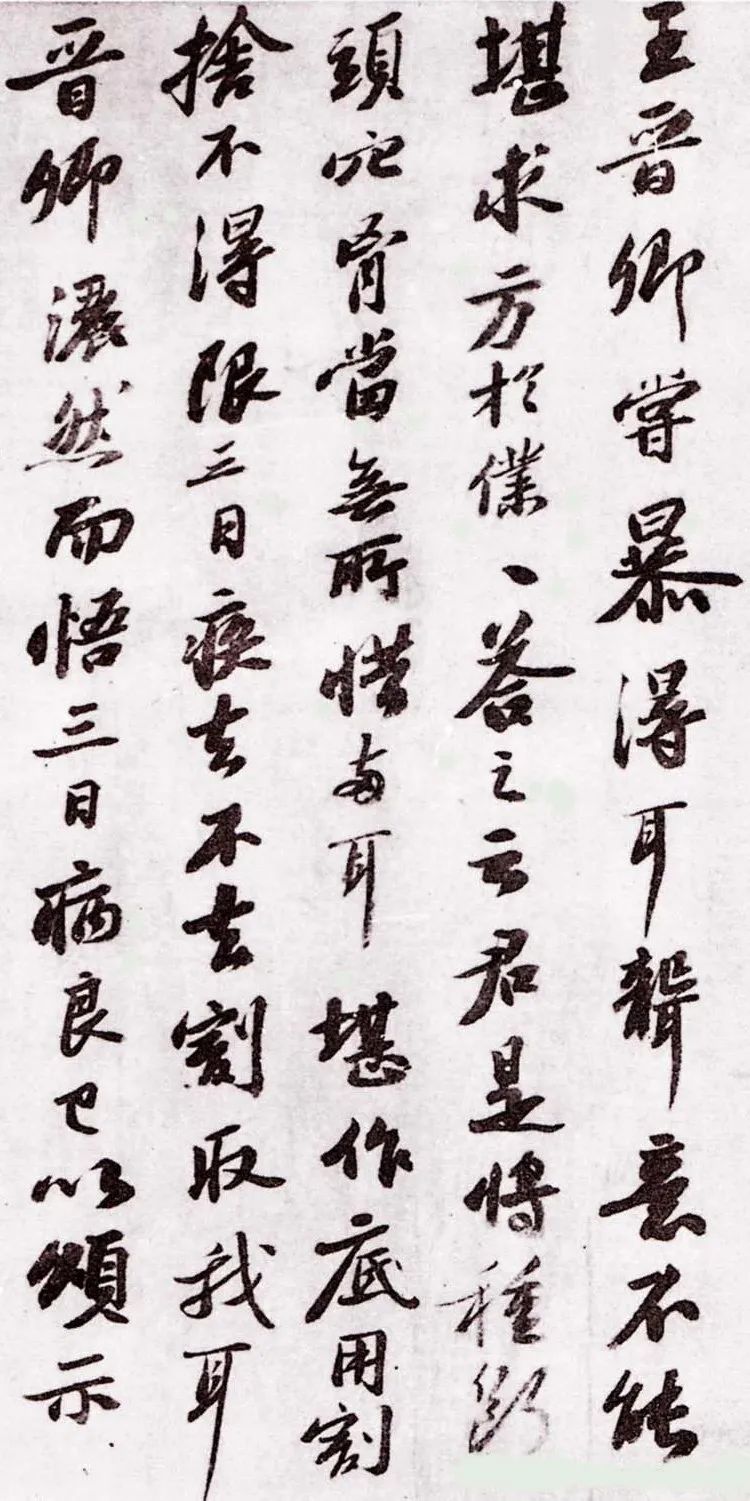 王晉卿嘗暴得耳聾意不能
堪求方於僕、荅之云君是將種斷
頭穴胷當無所惜兩耳堪作底用割
捨不得限三日疾去不去割取我耳
晉卿灑然而悟三日病良已以頌示